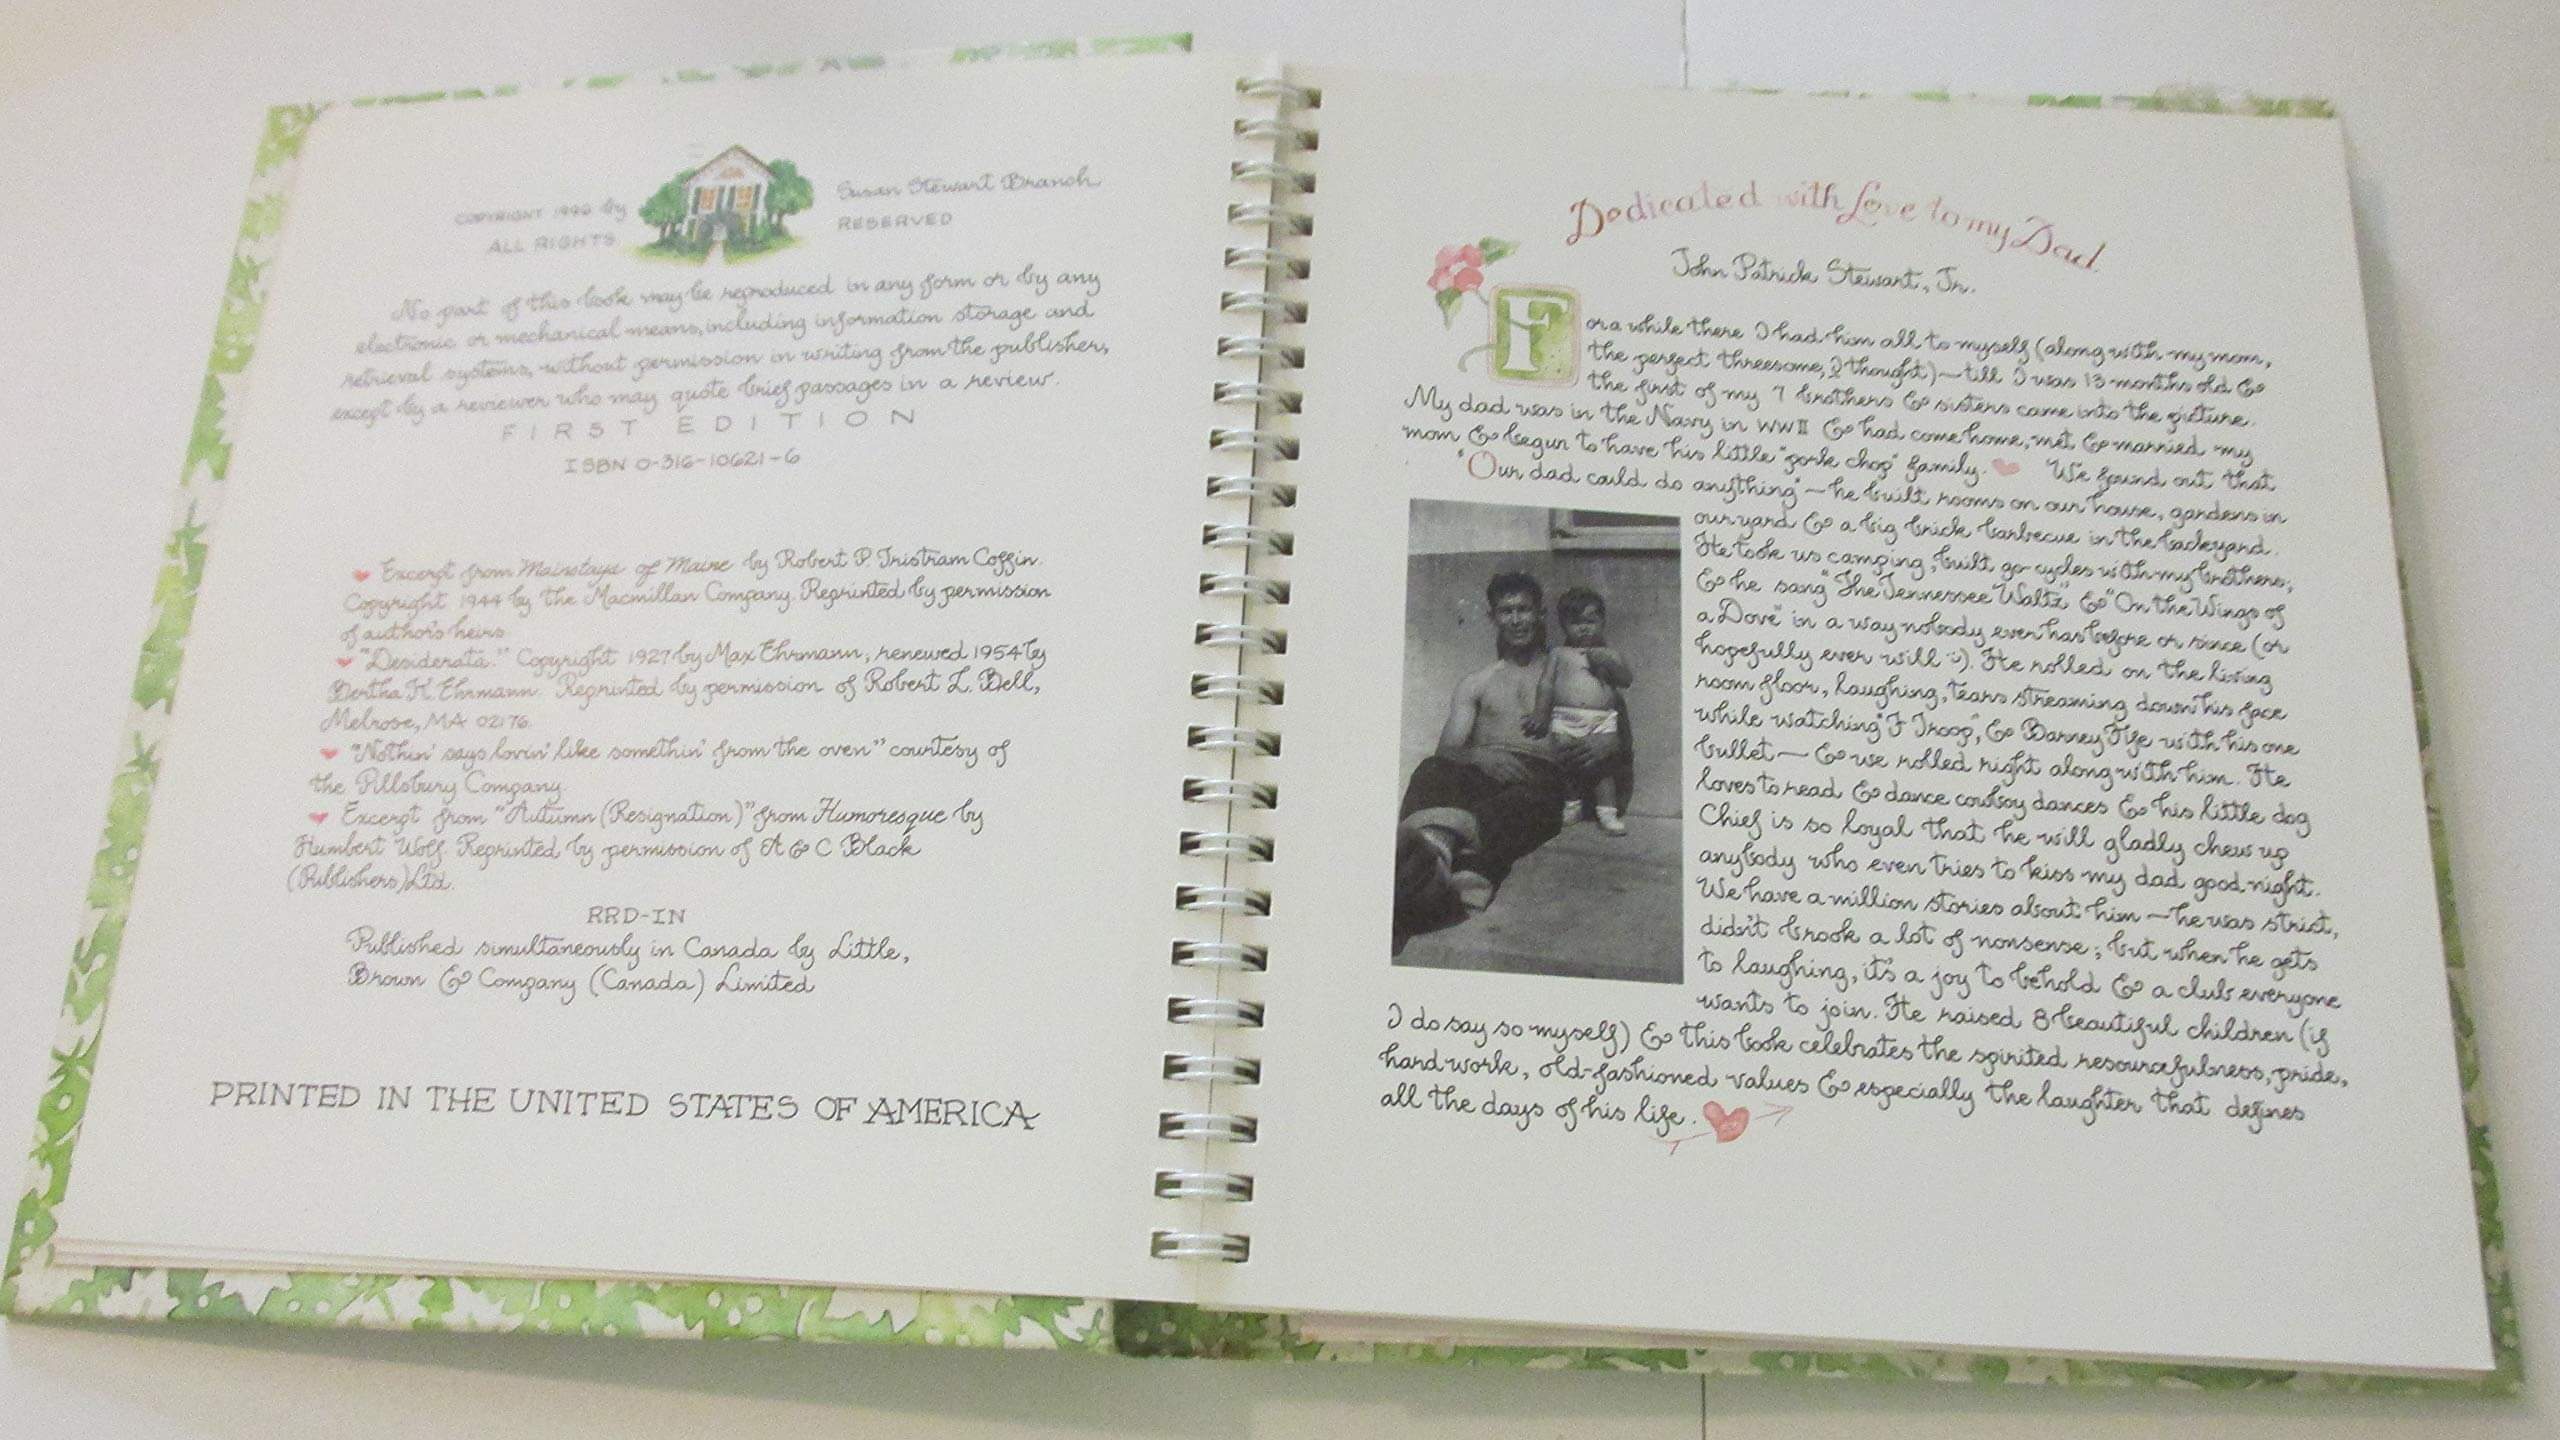 COPYRIGHT by Susan Stewart Branch
ALL RIGHTS RESERVED
No part of this book may be reproduced in any form or by any
electronic or mechanical means, including information storage and
retrieval systems, without permission in writing from the publisher,
except by a reviewer who may quote brief passages in a review.
FIRST EDITION
ISBN 0-316-10621-6
Excerpt from Mainstays of Maine by Robert P. Tristram Coffin.
Copyright 1944 by the Macmillan Company. Reprinted by permission
of author's heirs
"Desiderata." Copyright 1927 by Max Ehrmann; renewed 1954 by
Bertha K. Ehrmann. Reprinted by permission of Robert L. Bell,
Melrose, MA 02176.
"Nothin' says lovin' like somethin' from the oven" courtesy of
the Pillsbury Company.
Excerpt from "Autumn (Resignation)" from Humoresque by
Humbert Wolf. Reprinted by permission of A & C Black
(Publishers) Ltd.
RRD-IN
Published simultaneously in Canada by Little,
Brown & Company (Canada) Limited
PRINTED IN THE UNITED STATES OF AMERICA
Dedicated with Love to my Dad.
John Patrick Stewart, Jr.
For a while there I had him all to myself (along with my mom,
the perfect threesome, I thought) — till I was 13 months old &
the first of my 7 brothers & sisters came into the picture.
My dad was in the Navy in WWII & had come home, met & married my
mom & begun to have his little "pork chop" family. We found out that
"Our dad could do anything" — he built rooms on our house, gardens in
our yard & a big brick barbecue in the backyard.
He took us camping, built go-cycles with my brothers,
& he sang "The Tennessee Waltz" & "On the Wings of
a Dove" in a way nobody ever has before or since (or
hopefully ever will :)). He rolled on the living
room floor, laughing, tears streaming down his face
while watching "F Troop", & Barney Fife with his one
bullet — & we rolled right along with him. He
loves to read & dance cowboy dances & his little dog
Chief is so loyal that he will gladly chew up
anybody who even tries to kiss my dad good night.
We have a million stories about him — he was strict,
didn't brook a lot of nonsense; but when he gets
to laughing, it's a joy to behold & a club everyone
wants to join. He raised 8 beautiful children (if
I do say so myself) & this book celebrates the spirited resourcefulness, pride,
hard work, old-fashioned values & especially the laughter that defines
all the days of his life.